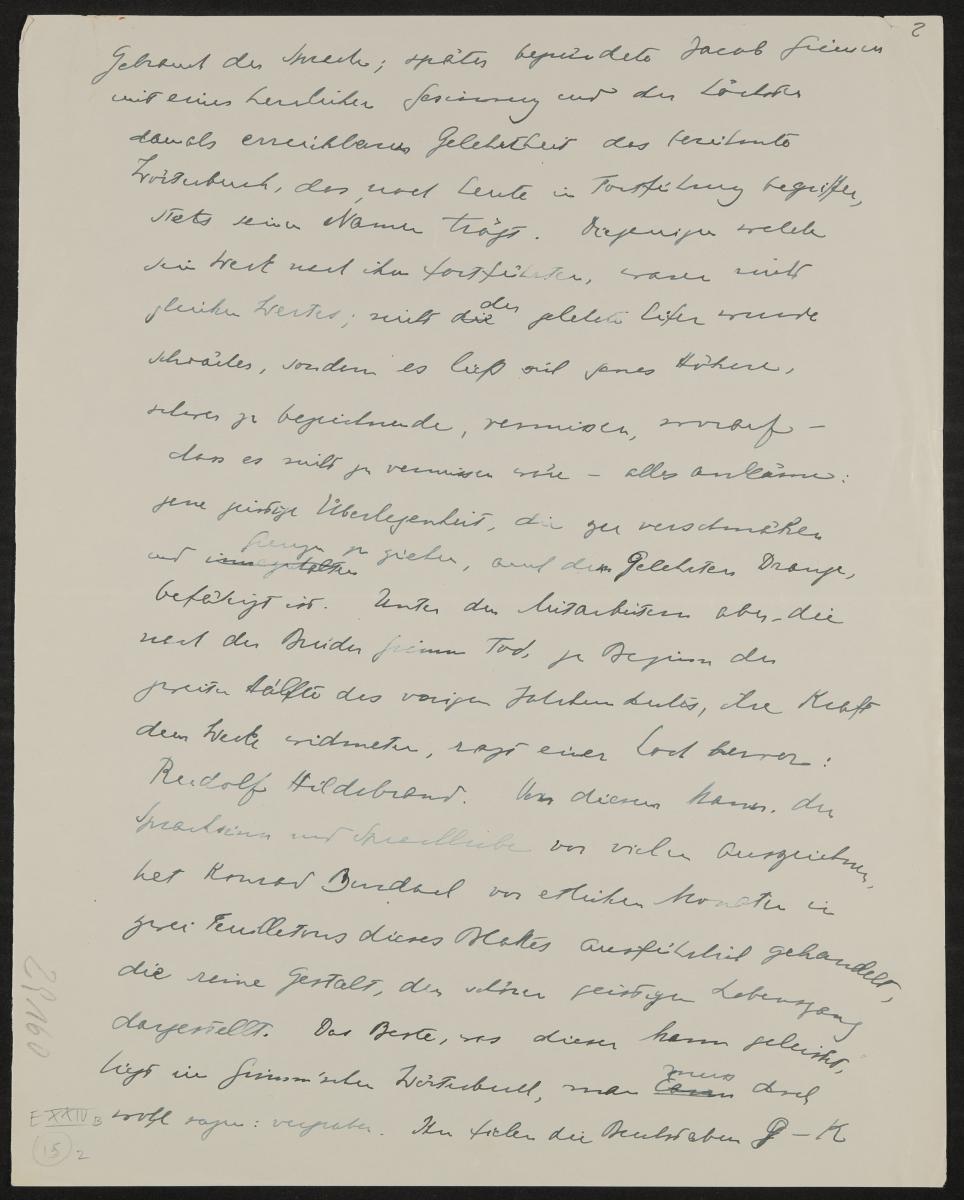 2
Gebraucht der Sprache; später begründete Jacob Grimm
mit einer herrlichen Gesinnung und der höchsten
damals erreichbaren Gelehrtheit das berühmte
Wörterbuch, das, noch heute in Fortführung begriffen,
stets seinen Namen trägt. Diejenigen welche
sein Werk nach ihm fortführten, waren nicht
gleichen Wertes; nicht die der gelehrte Eifer wurde
schwächer, sondern es ließ sich jenes Höhere,
schwer zu bezeichnende, vermissen, worauf –
dass es nicht zu vermissen wäre – alles ankäme:
jene geistige Überlegenheit, die zu verschmähen
und Grenzen zu ziehen, auch dem Gelehrten Drange,
befähigt ist. Unter den Mitarbeitern aber, die
nach der Brüder Grimm Tod, zu Beginn der
zweiten Hälfte des vorigen Jahrhunderts, ihre Kraft
dem Werke widmeten, ragt einer hoch hervor:
Rudolf Hildebrand. Von diesem Mann, den
Sprachsinn und Sprachliebe vor vielen auszeichnen,
hat Konrad Burdach vor etlichen Monaten in
zwei Feuilletons dieses Blattes ausführlich gehandelt,
die reine Gestalt, den schönen geistigen Lebensgang
dargestellt. Das Beste, was dieser Mann geleistet,
liegt im Grimm'schen Wörterbuch, man muss doch
wohl sagen: vergraben. Ihm fielen die Buchstaben G – K
29160
E XXIV B
15 2